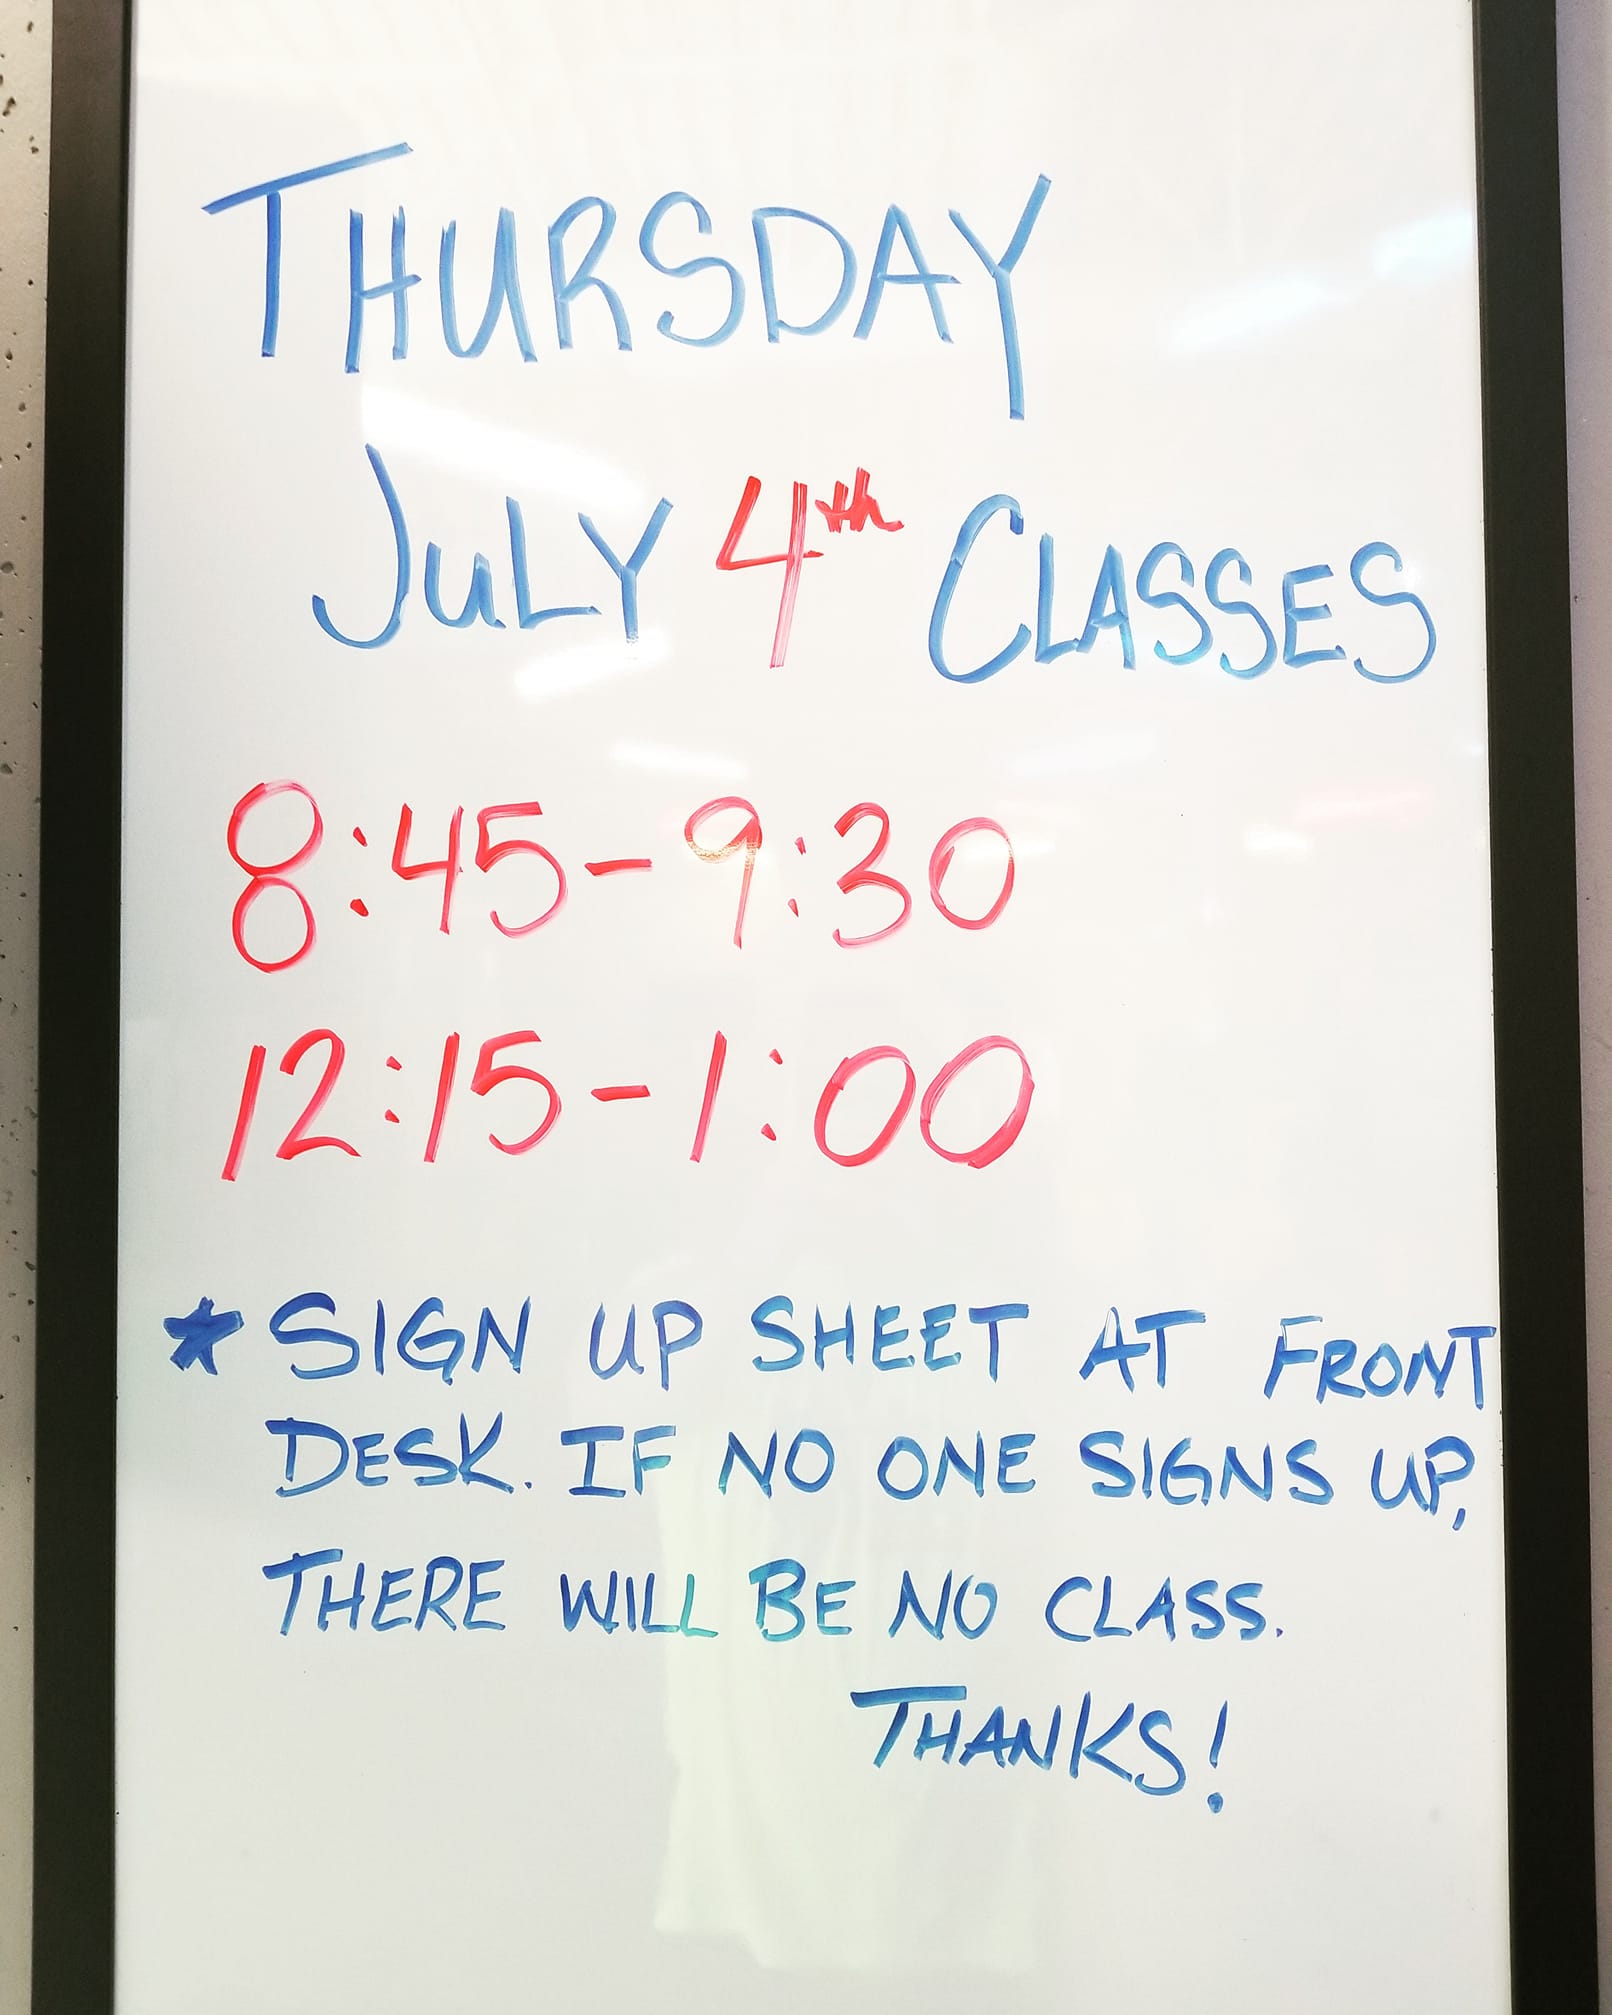 THURSDAY
JULY 4th CLASSES
8:45-9:30
12:15-1:00
* SIGN UP SHEET AT FRONT
DESK. IF NO ONE SIGNS UP,
THERE WILL BE NO CLASS.
THANKS!